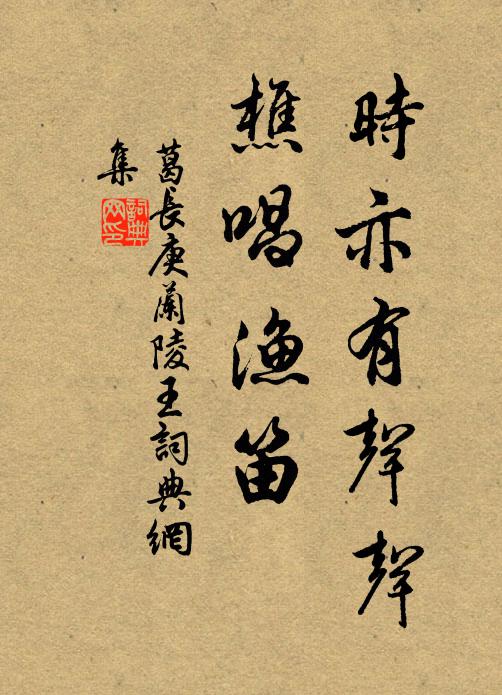 時亦有聲聲
樵唱漁笛
葛長庚蘭陵王詞典網
集
詞典網印